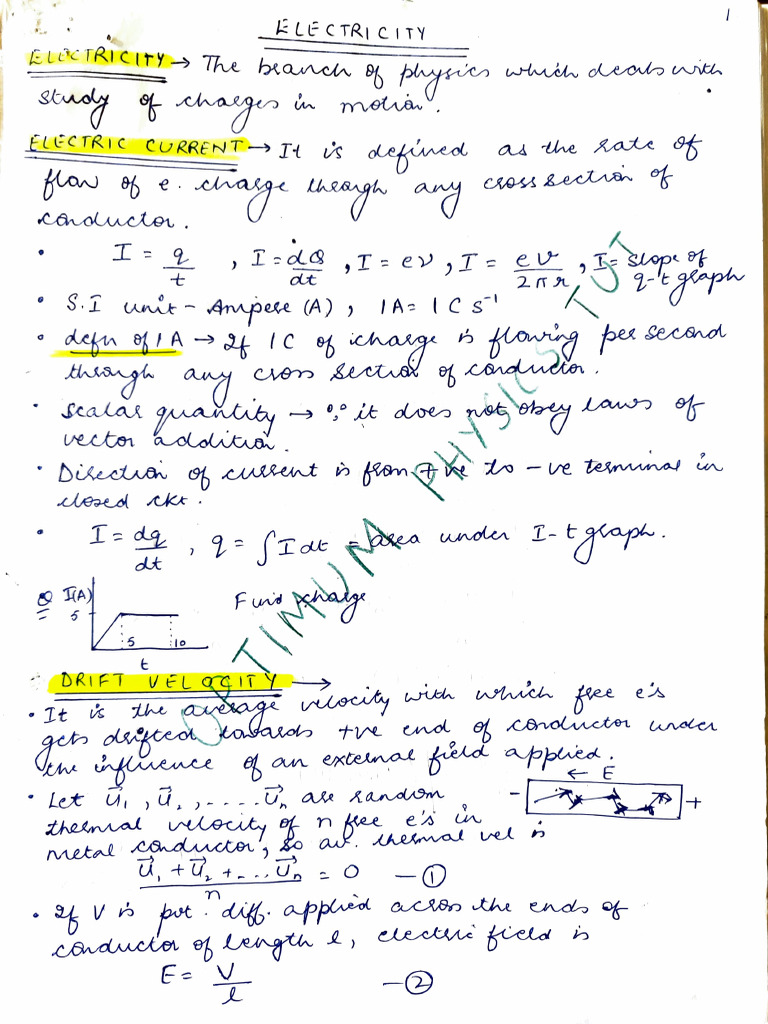 1
ELECTRICITY
ELECTRICITY → The branch of physics which deals with
study of charges in motion.
ELECTRIC CURRENT → It is defined as the rate of
flow of e. charge through any cross section of
conductor.
• I = q/t , I = dQ/dt , I = eν , I = ev/2πr , I = slope of
q-t graph
• S.I unit - Ampere (A) , 1A = 1 C s⁻¹
• defn of 1 A → If 1C of charge is flowing per second
through any cross section of conductor.
• Scalar quantity → ∵ it does not obey laws of
vector addition.
• Direction of current is from +ve to -ve terminal in
closed ckt.
• I = dq/dt , q = ∫ I dt = area under I-t graph.
Q I(A) Find charge
5
5 10
t
DRIFT VELOCITY →
• It is the average velocity with which free e's
gets drifted towards +ve end of conductor under
the influence of an external field applied.
← E
- +
• Let u⃗₁ , u⃗₂ , ..... u⃗n are random
thermal velocity of n free e's in
metal conductor, so av. thermal vel is
u⃗₁ + u⃗₂ + ... u⃗n / n = 0 — ①
• If V is pot. diff. applied across the ends of
conductor of length l, electric field is
E = V/l — ②
OPTIMUM PHYSICS TUT